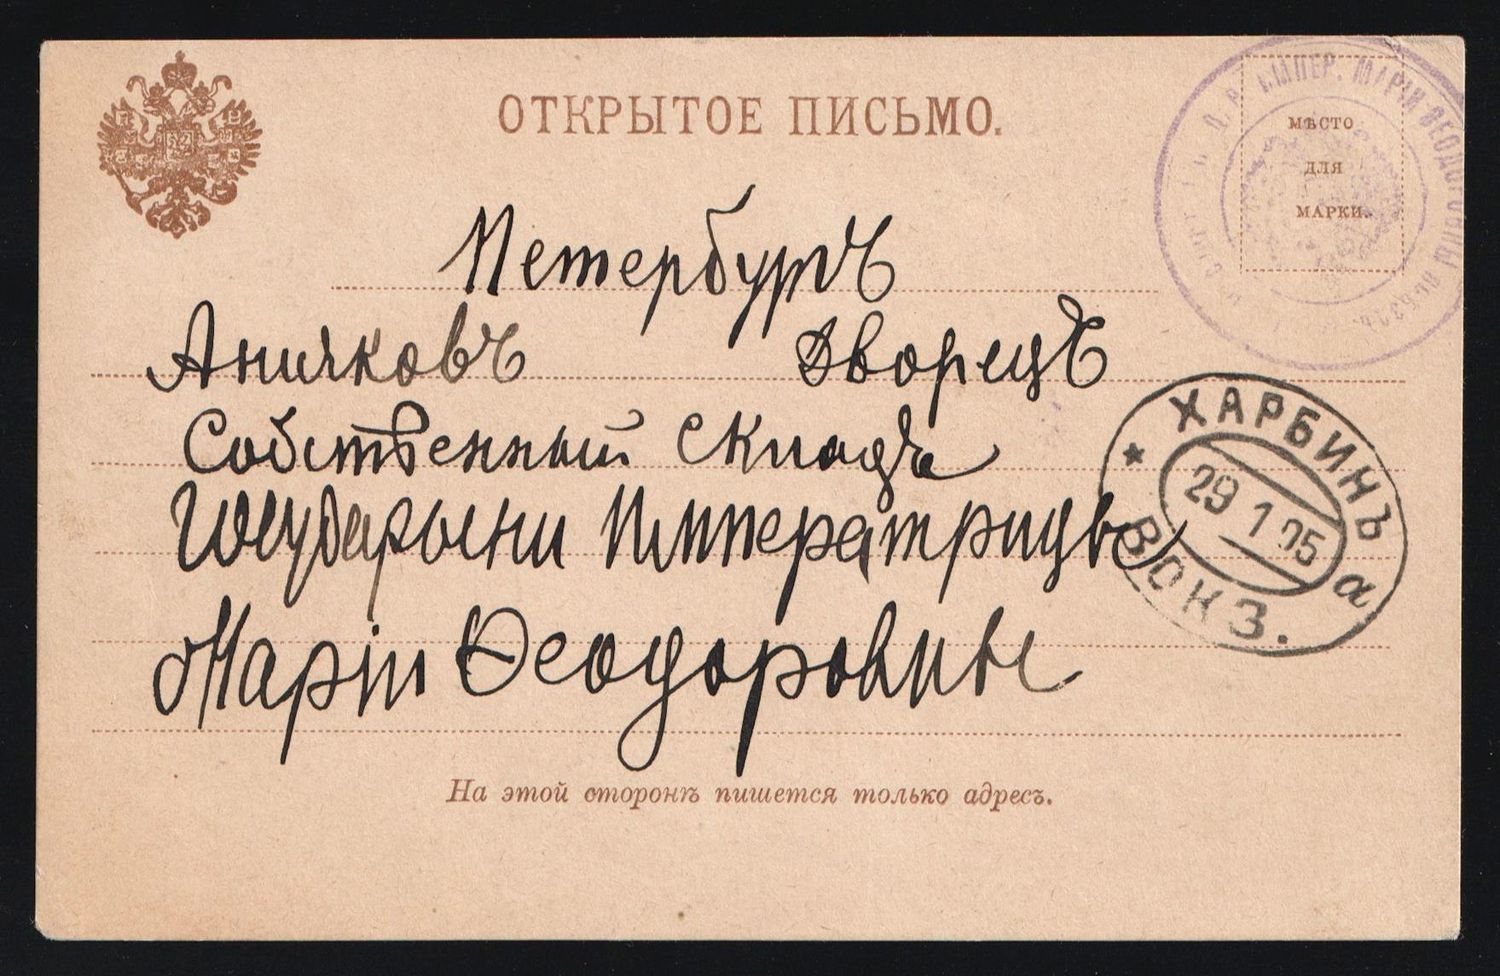 ОТКРЫТОЕ ПИСЬМО.
МѢСТО
ДЛЯ
МАРКИ.
ИМПЕР. МАРІИ ѲЕОДОРОВНЫ
Петербургъ
Аничковъ Дворецъ
Собственный складъ
Государыни Императрицы
Маріи Ѳеодоровны
ХАРБИНЪ
29 1 05
ВОКЗ. а
На этой сторонѣ пишется только адресъ.